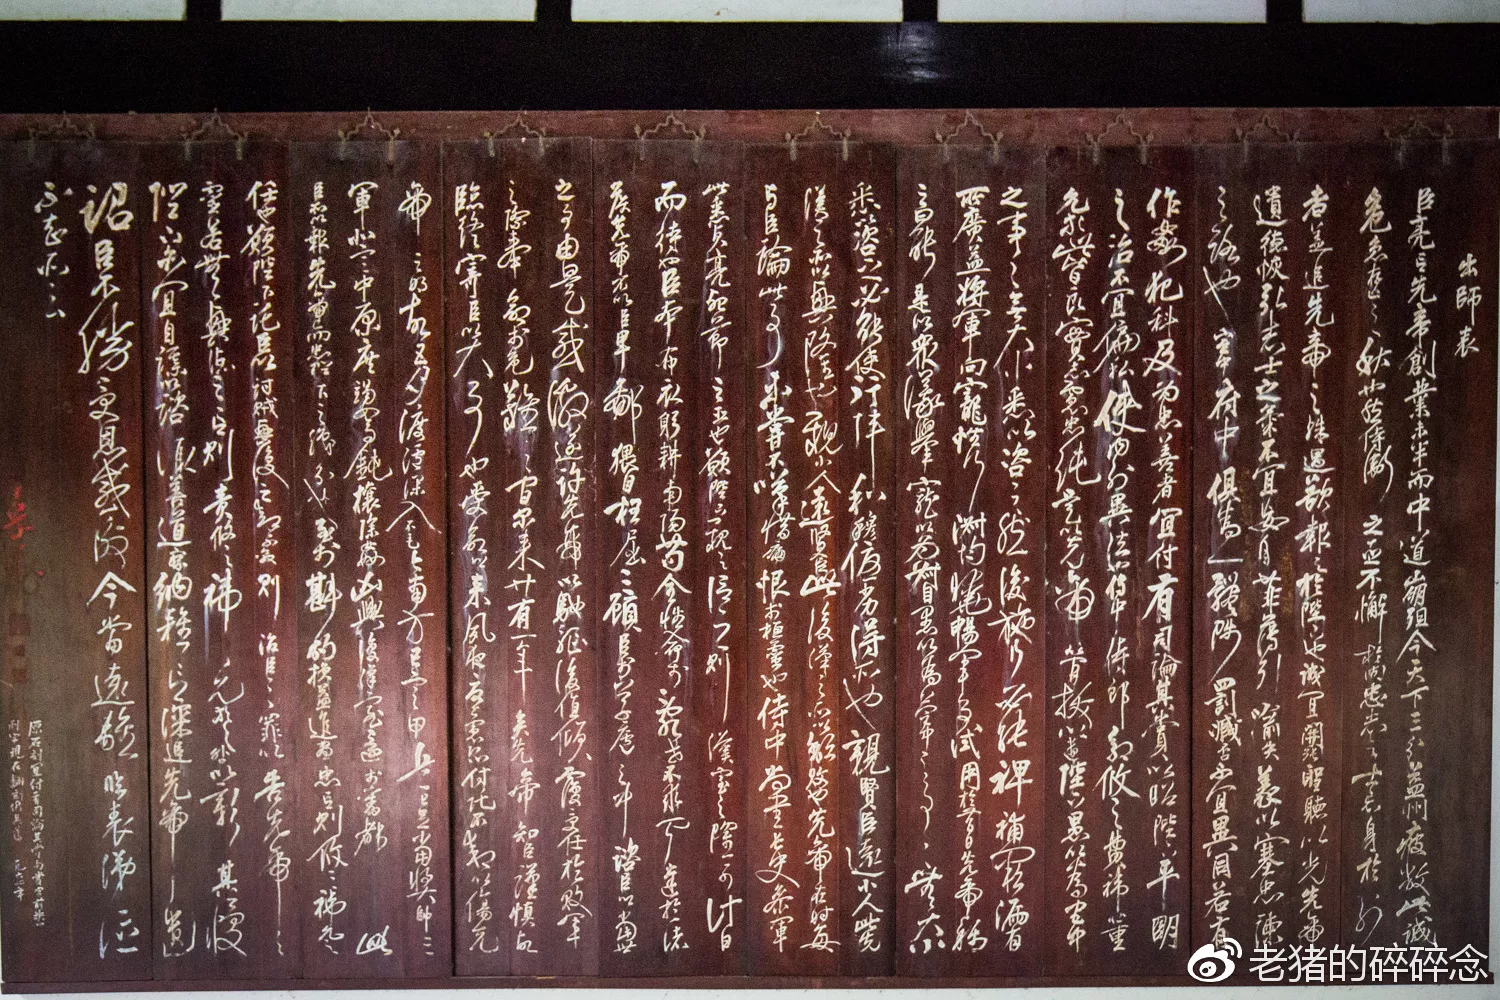 出師表
臣亮言先帝創業未半而中道崩殂今天下三分益州疲敝此誠
危急存亡之秋也然侍衛之臣不懈於內忠志之士忘身於外
者蓋追先帝之殊遇欲報之於陛下也誠宜開張聖聽以光先帝
遺德恢弘志士之氣不宜妄自菲薄引喻失義以塞忠諫
之路也宮中府中俱為一體陟罰臧否不宜異同若有
作姦犯科及為忠善者宜付有司論其刑賞以昭陛下平明
之治不宜偏私使內外異法也侍中侍郎郭攸之費禕董
允等此皆良實志慮忠純是以先帝簡拔以遺陛下愚以為宮中
之事事無大小悉以咨之然後施行必能裨補闕漏有
所廣益將軍向寵性行淑均曉暢軍事試用於昔日先帝稱
之曰能是以眾議舉寵以為督愚以為營中之事事無大小
悉咨之必能使行陣和睦優劣得所也親賢臣遠小人此先
漢之所以興隆也親小人遠賢臣此後漢之所以傾頹也先帝在時每
與臣論此事未嘗不嘆惜痛恨於桓靈也侍中尚書長史參軍
此悉貞亮死節之臣也願陛下親之信之則漢室之隆可計日
而待也臣本布衣躬耕南陽苟全性命於亂世不求聞達於諸
侯先帝不以臣卑鄙猥自枉屈三顧臣於草廬之中諮臣以當世
之事由是感激遂許先帝以驅馳後值傾覆受任於敗軍
之際奉命於危難之間爾來廿有一年矣先帝知臣謹慎故
臨終寄臣以大事也受命以來夙夜憂嘆恐付託不效以傷先
帝之明故五月渡瀘深入不毛今南方已定甲兵已足當獎帥三
軍北定中原庶竭駑鈍攘除姦凶興復漢室還於舊都此
臣所以報先帝而忠陛下之職分也至於斟酌損益進盡忠言則攸之禕允之
任也願陛下託臣以討賊興復之效不效則治臣之罪以告先帝之
靈若無興德之言則責攸之禕允等咎以彰其慢
陛下亦宜自謀以諮諏善道察納雅言深追先帝遺
詔臣不勝受恩感激今當遠離臨表涕泣
不知所云
老猪的碎碎念